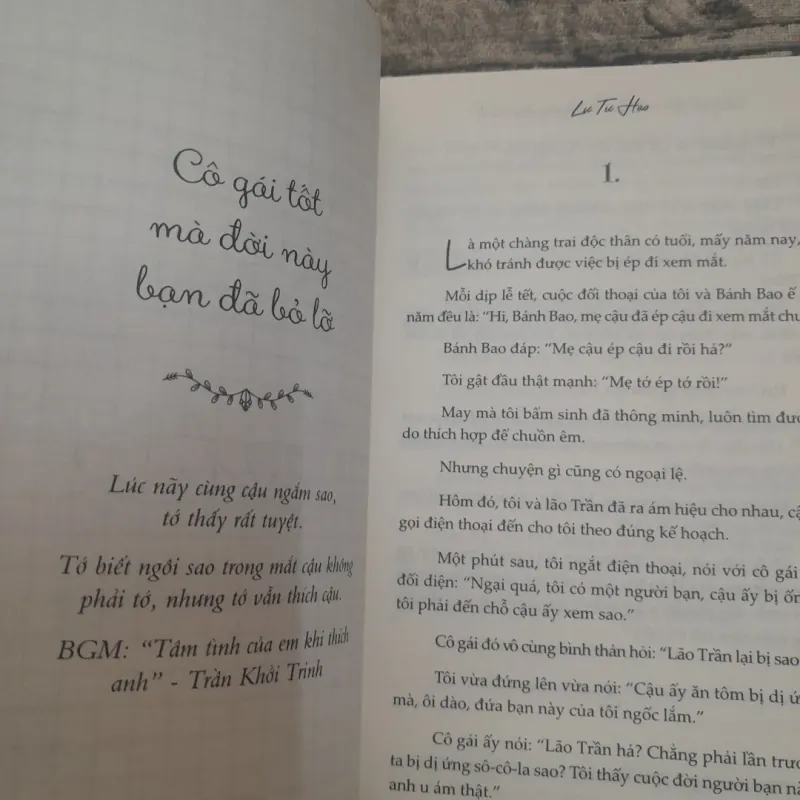 Cô gái tốt
mà đời này
bạn đã bỏ lỡ
Lúc nãy cùng cậu ngắm sao,
tớ thấy rất tuyệt.
Tớ biết ngôi sao trong mắt cậu không
phải tớ, nhưng tớ vẫn thích cậu.
BGM: “Tâm tình của em khi thích
anh” - Trần Khởi Trinh
Lư Tư Hạo
1.
Là một chàng trai độc thân có tuổi, mấy năm nay,
khó tránh được việc bị ép đi xem mắt.
Mỗi dịp lễ tết, cuộc đối thoại của tôi và Bánh Bao ế
năm đều là: “Hi, Bánh Bao, mẹ cậu đã ép cậu đi xem mắt
Bánh Bao đáp: “Mẹ cậu ép cậu đi rồi hả?”
Tôi gật đầu thật mạnh: “Mẹ tớ ép tớ rồi!”
May mà tôi bẩm sinh đã thông minh, luôn tìm
do thích hợp để chuồn êm.
Nhưng chuyện gì cũng có ngoại lệ.
Hôm đó, tôi và lão Trần đã ra ám hiệu cho nhau,
gọi điện thoại đến cho tôi theo đúng kế hoạch.
Một phút sau, tôi ngắt điện thoại, nói với cô gái
đối diện: “Ngại quá, tôi có một người bạn, cậu ấy bị
tôi phải đến chỗ cậu ấy xem sao.”
Cô gái đó vô cùng bình thản hỏi: “Lão Trần lại bị sao
Tôi vừa đứng lên vừa nói: “Cậu ấy ăn tôm bị dị
mà, ôi dào, đứa bạn này của tôi ngốc lắm.”
Cô gái ấy nói: “Lão Trần hả? Chẳng phải lần
ta bị dị ứng sô-cô-la sao? Tôi thấy cuộc đời người bạn
anh u ám thật.”